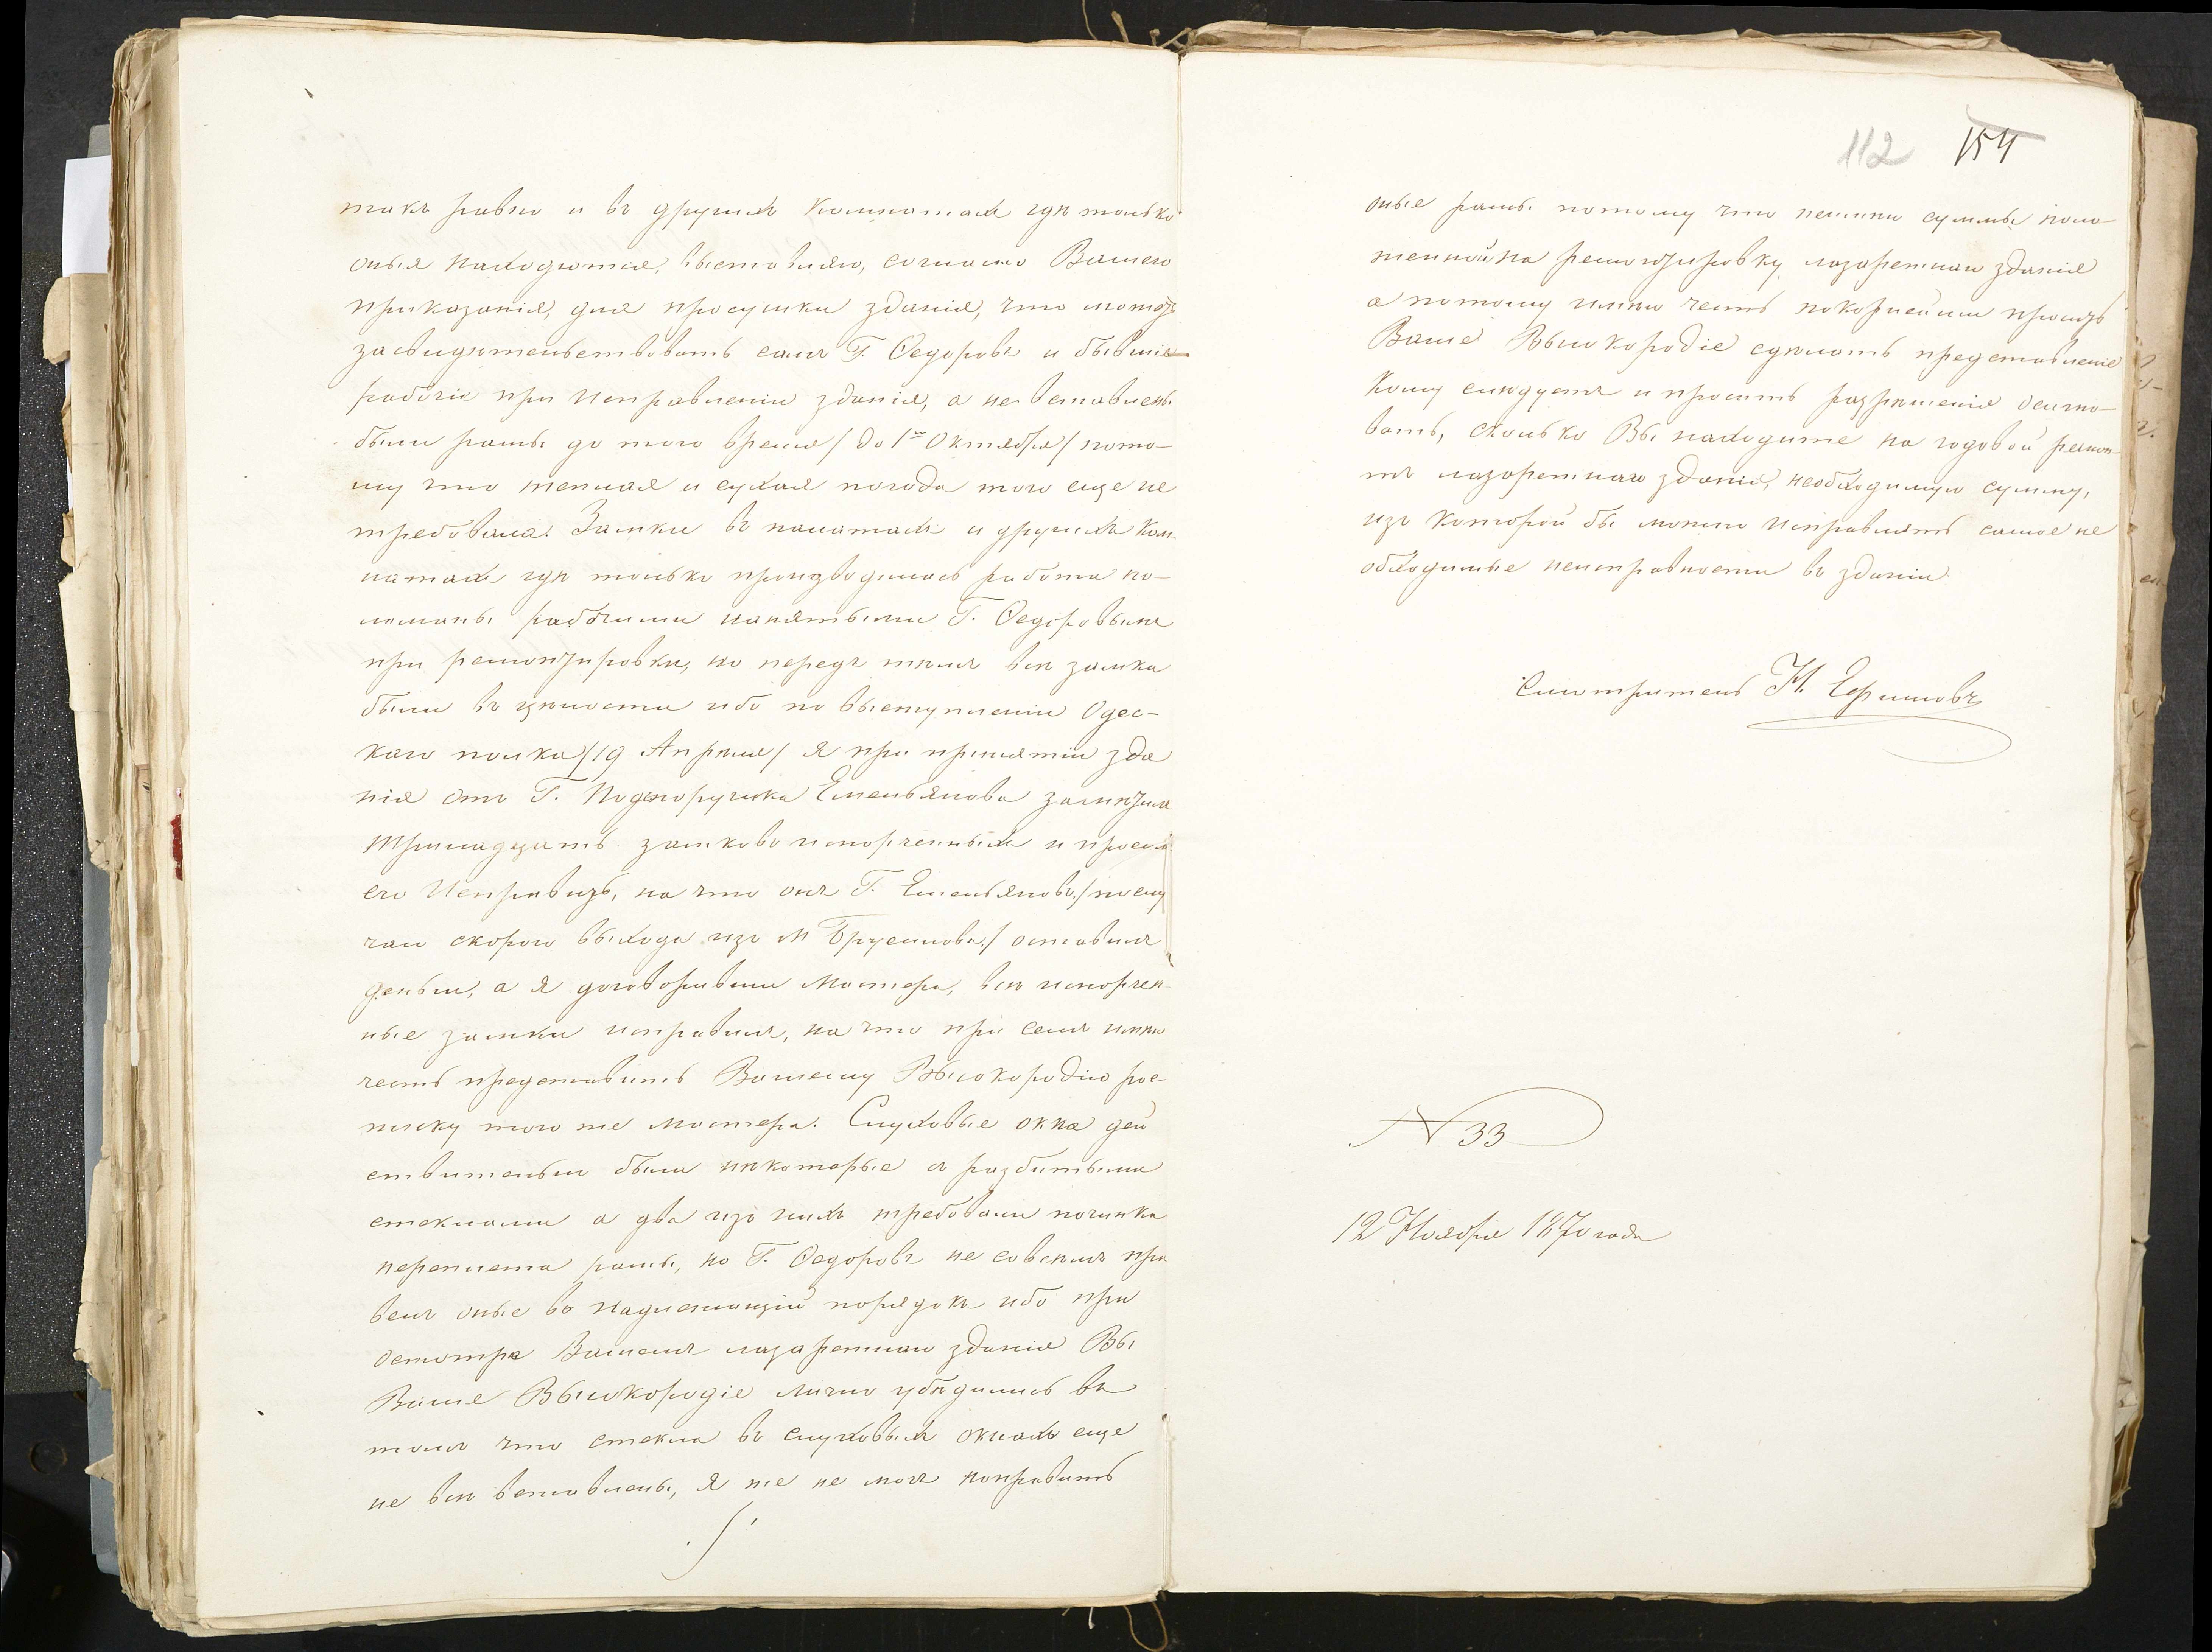 такъ равно и въ другихъ комнатахъ гдѣ только
оныя находются, выставляю, согласно Вашего
приказанія, для просушки зданія, что можетъ
засвидѣтельствовать самъ Г. Ѳедоровъ и бывшіе
рабочіе при исправленіи зданія, а не вставлены
были рамы до того время /до 1го Октября/ пото-
му что теплая и сухая погода того еще не
требовала. Замки въ палатахъ и другихъ ком-
натахъ гдѣ только производилась работа по-
ломаны рабочими нанятыми Г. Ѳедоровымъ
при ремонтировки, но передъ тѣмъ всѣ замки
были въ цѣлости ибо по выступленіи Одес-
каго полка /19 Апрѣля/ я при принятіи зда
нія отъ Г. Подпоручика Емельянова замѣтилъ
тринадцать замковъ испорченныхъ и просилъ
его исправить, на что онъ Г. Емельяновъ /по слу
чаю скораго выхода изъ М Брусилова/ оставилъ
деньги, а я договоривши мастера, всѣ испорчен-
ные замки исправилъ, на что при семъ имѣю
честь представить Вашему Высокородію рос-
писку того же мастера. Слуховые окна дей
ствительно были нѣкоторые съ разбитыми
стеклами а два изъ нихъ требовали починки
переплета рамы, но Г. Ѳедоровъ не совсѣмъ при
велъ оные въ надлежащій порядокъ ибо при
осмотрѣ Вашемъ лазаретнаго зданія Вы
Ваше Высокородіе лично убѣдились въ
томъ что стекла въ слуховыхъ окнахъ еще
не всѣ вставлены, я же не могъ поправить
112 154
оные рамы потому что неимѣю суммы поло-
женной на ремонтировку лазаретнаго зданія
а потому имѣю честь покорнѣйше просить
Ваше Высокородіе сдѣлать представленіе
кому слѣдуетъ и просить разрѣшенія осигно-
вать, сколько Вы находите на годовой ремон-
тъ лазаретнаго зданія, необходимую сумму,
изъ которой бы можно исправлять самое не
обходимые неисправности въ зданіи
Смотритель Н. Ефимовъ
N 33
12 Ноября 1870 года